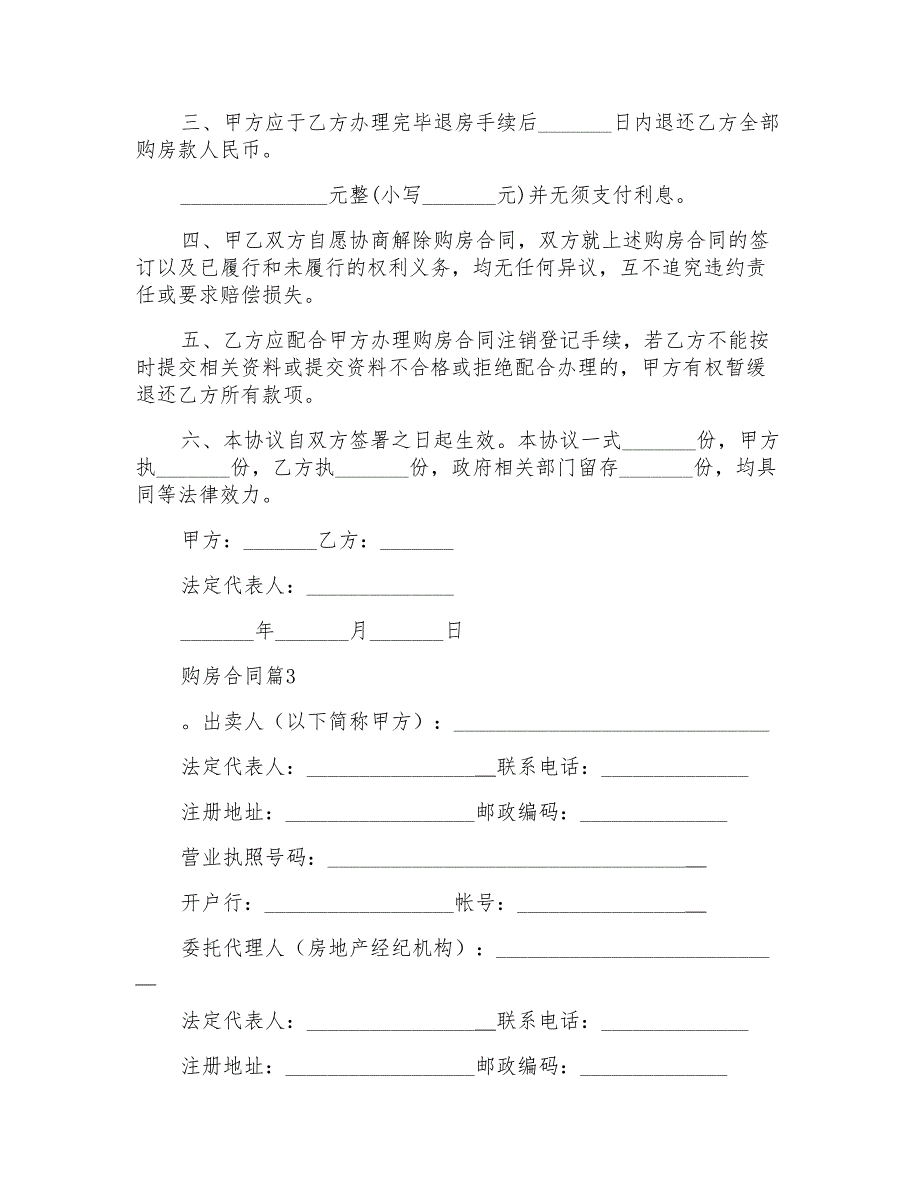 三、甲方应于乙方办理完毕退房手续后_______日内退还乙方全部
购房款人民币。
______________元整(小写_______元)并无须支付利息。
四、甲乙双方自愿协商解除购房合同，双方就上述购房合同的签
订以及已履行和未履行的权利义务，均无任何异议，互不追究违约责
任或要求赔偿损失。
五、乙方应配合甲方办理购房合同注销登记手续，若乙方不能按
时提交相关资料或提交资料不合格或拒绝配合办理的，甲方有权暂缓
退还乙方所有款项。
六、本协议自双方签署之日起生效。本协议一式_______份，甲方
执_______份，乙方执_______份，政府相关部门留存_______份，均具
同等法律效力。
甲方：_______乙方：_______
法定代表人：______________
_______年_______月_______日
购房合同篇3
。出卖人（以下简称甲方）：______________________________
法定代表人：__________________联系电话：______________
注册地址：__________________邮政编码：______________
营业执照号码：____________________________________
开户行：__________________帐号：__________________
委托代理人（房地产经纪机构）：__________________________
__
法定代表人：__________________联系电话：______________
注册地址：__________________邮政编码：______________